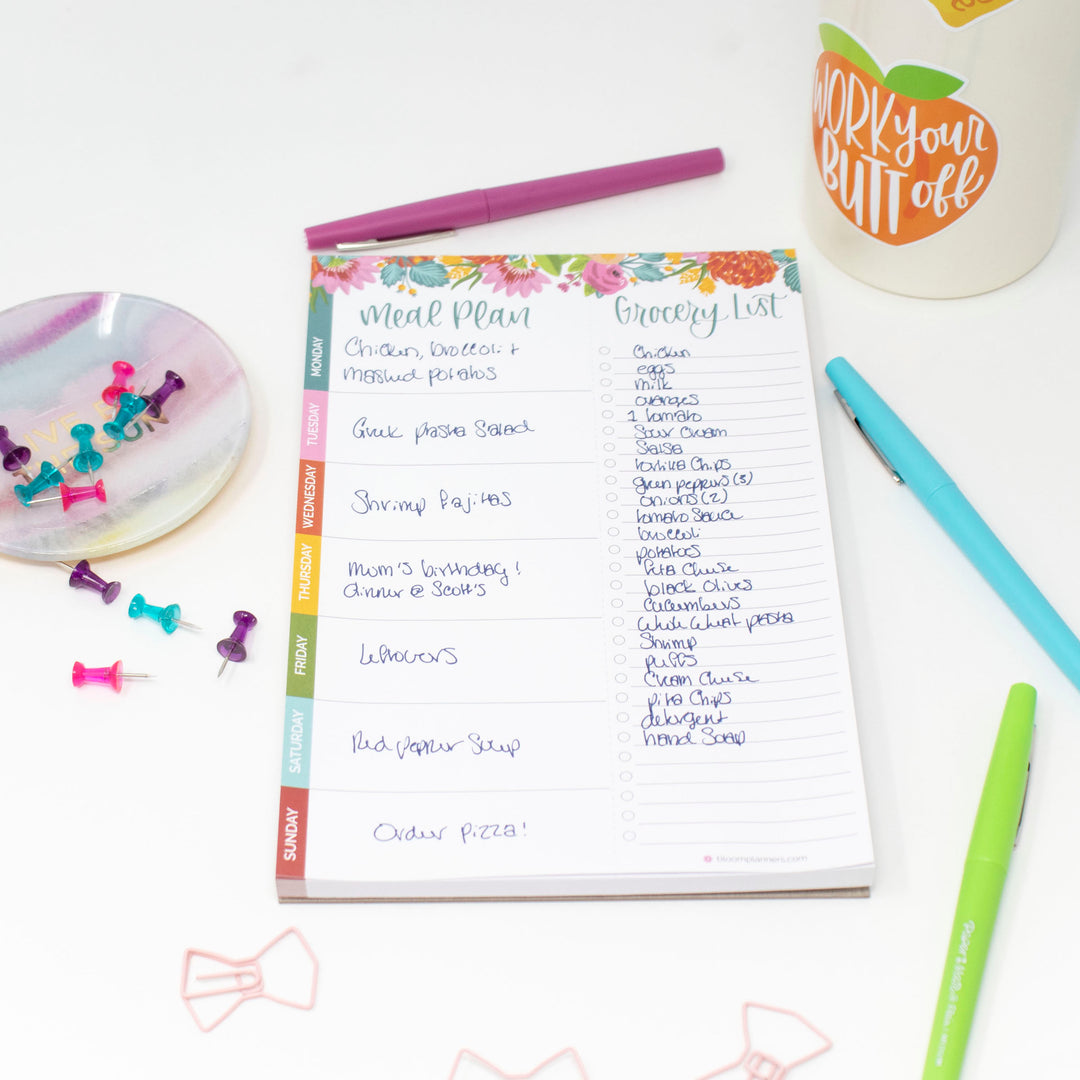 WORK your
BUTT off
Meal Plan
MONDAY
Chicken, broccoli +
mashed potatos
TUESDAY
Greek pasta Salad
WEDNESDAY
Shrimp fajitas
THURSDAY
mom's birthday!
dinner @ Scott's
FRIDAY
leftovers
SATURDAY
Red pepper Soup
SUNDAY
Order pizza!
Grocery List
Chicken
eggs
milk
oranges
1 tomato
Sour Cream
Salsa
tortilla Chips
Green peppers (3)
onions (2)
tomato Sauce
broccoli
potatoes
feta Cheese
black Olives
Cucumbers
Whole Wheat pasta
Shrimp
puffs
Cream Cheese
pita Chips
detergent
hand Soap
bloomplanners.com
LIVE BY
THE SUN